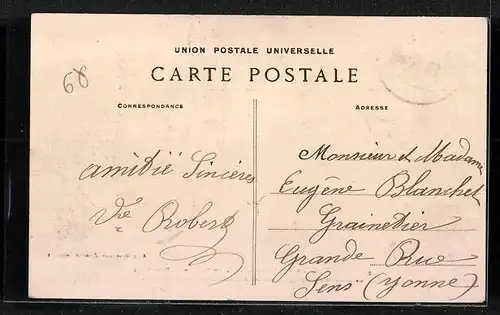 UNION POSTALE UNIVERSELLE
CARTE POSTALE
68
CORRESPONDANCE
ADRESSE
amitié Sincères
Vve Robert
Monsieur et Madame
Eugène Blanchet
Grainetier
Grande Rue
Sens (Yonne)